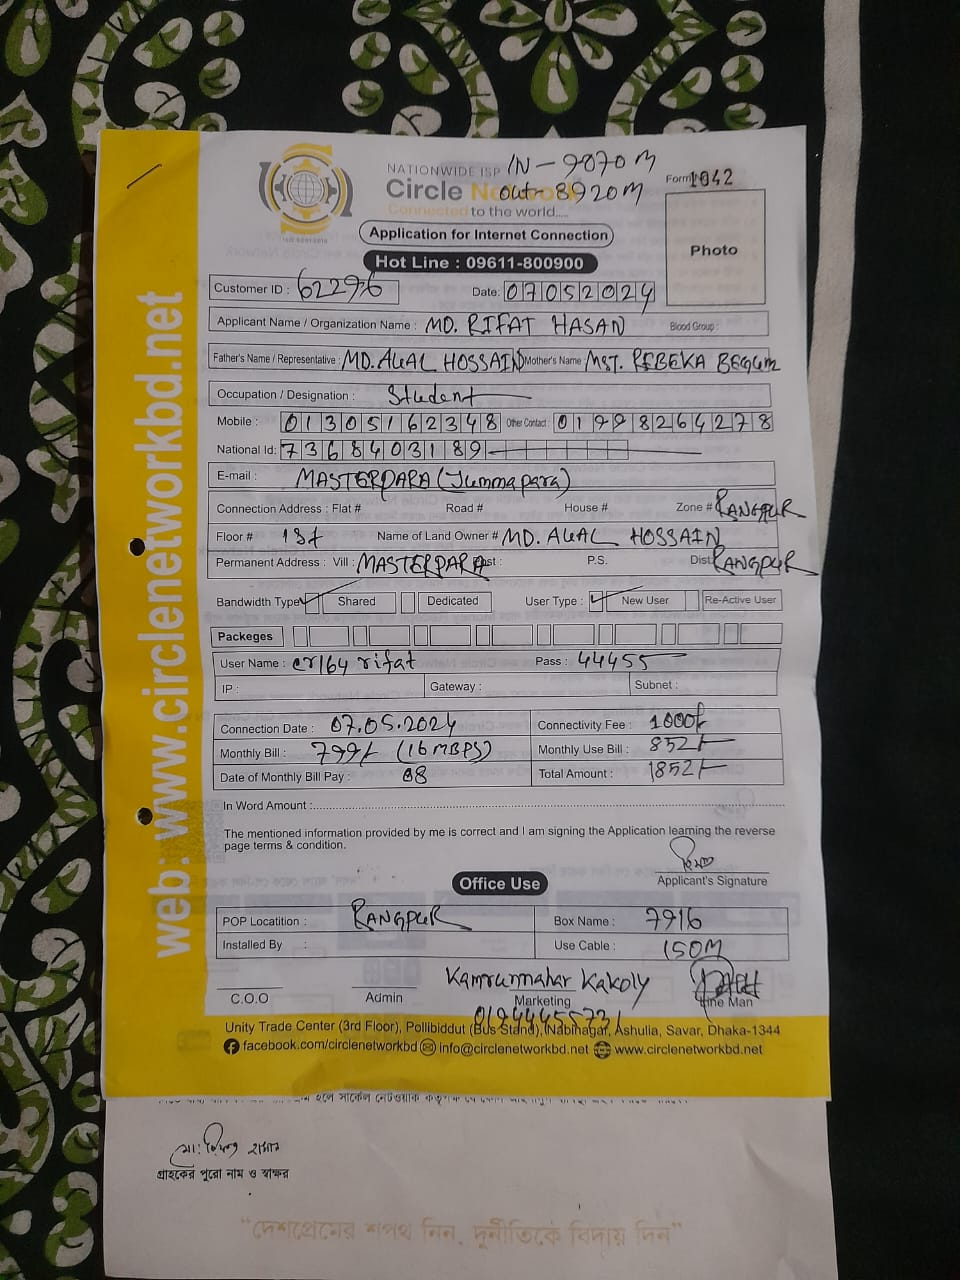 NATIONWIDE ISP IN - 9070 M
Circle Network out - 8920M Form 1042
Connected to the world.....
Application for Internet Connection
Photo
Hot Line : 09611-800900
Customer ID : 62296 Date: 07052024
Applicant Name / Organization Name : MD. RIFAT HASAN Blood Group :
Father's Name / Representative : MD. ALAL HOSSAIN Mother's Name : MST. REBEKA BEGUM
Occupation / Designation : Student
Mobile : 01305162348 Other Contact : 01998264278
National Id: 7368403189
E-mail : MASTERPARA (Jummapara)
Connection Address : Flat # Road # House # Zone # RANGPUR
Floor # 1st Name of Land Owner # MD. ALAL HOSSAIN
Permanent Address : Vill : MASTERPARA Post : P.S. Dist: RANGPUR
Bandwidth Type Shared Dedicated User Type : New User Re-Active User
Packeges
User Name : cr164 rifat Pass : 44455
IP : Gateway : Subnet :
Connection Date : 07.05.2024 Connectivity Fee : 1000/-
Monthly Bill : 799/- (16 MBPS) Monthly Use Bill : 852/-
Date of Monthly Bill Pay : 08 Total Amount : 1852/-
In Word Amount :
The mentioned information provided by me is correct and I am signing the Application learning the reverse
page terms & condition.
রিফাত
Applicant's Signature
Office Use
POP Locatition : RANGPUR Box Name : 7916
Installed By : Use Cable : 150M
Kamrunnahar Kakoly
C.O.O Admin Marketing Line Man
01944455731
Unity Trade Center (3rd Floor), Pollibiddut (Bus Stand), Nabinagar, Ashulia, Savar, Dhaka-1344
facebook.com/circlenetworkbd info@circlenetworkbd.net www.circlenetworkbd.net
web: www.circlenetworkbd.net
মো: রিফাত হাসান
গ্রাহকের পুরো নাম ও স্বাক্ষর
“দেশপ্রেমের শপথ নিন, দুর্নীতিকে বিদায় দিন”